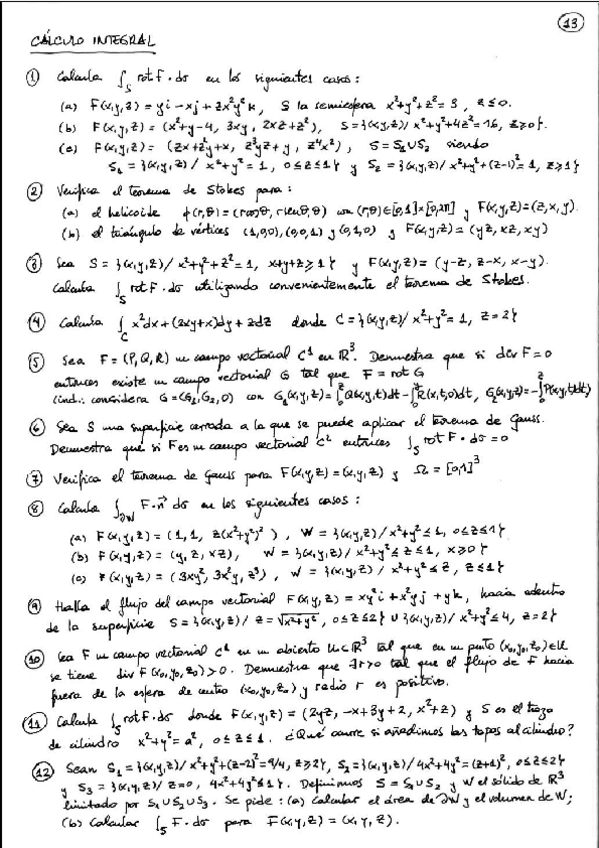 13
CÁLCULO INTEGRAL
① Calcula ∫_S rot F · dσ en los siguientes casos:
(a) F(x,y,z) = yi − xj + zx²y²k, S la semiesfera x²+y²+z² = 3, z≤0.
(b) F(x,y,z) = (x²+y−4, 3xy, 2xz+z²), S = {(x,y,z)/ x²+y²+4z² = 16, z≥0}.
(c) F(x,y,z) = (zx+z²y+x, z³yz+y, z⁴x²), S = S₁∪S₂ siendo
S₁ = {(x,y,z) / x²+y² = 1, 0≤z≤1} y S₂ = {(x,y,z)/ x²+y²+(z−1)² = 1, z≥1}
② Verifica el teorema de Stokes para:
(a) el helicoide ϕ(r,θ) = (r cosθ, r senθ, θ) con (r,θ)∈[0,1]×[0,2π] y F(x,y,z) = (z,x,y).
(b) el triángulo de vértices (1,0,0), (0,0,1) y (0,1,0) y F(x,y,z) = (yz, xz, xy)
③ Sea S = {(x,y,z)/ x²+y²+z² = 1, x+y+z≥1} y F(x,y,z) = (y−z, z−x, x−y).
Calcula ∫_S rot F · dσ utilizando convenientemente el teorema de Stokes.
④ Calcula ∫_C x²dx + (2xy+x)dy + zdz donde C = {(x,y,z)/ x²+y² = 1, z = 2}
⑤ Sea F = (P,Q,R) un campo vectorial C¹ en ℝ³. Demuestra que si div F = 0
entonces existe un campo vectorial G tal que F = rot G
(ind: considera G = (G₁,G₂,0) con G₁(x,y,z) = ∫₀ᶻ Q(x,y,t)dt − ∫₀ʸ R(x,t,0)dt, G₂(x,y,z) = −∫₀ᶻ P(x,y,t)dt)
⑥ Sea S una superficie cerrada a la que se puede aplicar el teorema de Gauss.
Demuestra que si F es un campo vectorial C² entonces ∫_S rot F · dσ = 0
⑦ Verifica el teorema de Gauss para F(x,y,z) = (x,y,z) y Ω = [0,1]³
⑧ Calcula ∫_∂W F · n⃗ dσ en los siguientes casos:
(a) F(x,y,z) = (1, 1, z(x²+y²)²), W = {(x,y,z)/ x²+y² ≤ 1, 0≤z≤1}
(b) F(x,y,z) = (y, z, xz), W = {(x,y,z)/ x²+y² ≤ z ≤ 1, x≥0}
(c) F(x,y,z) = (3xy², 3x²y, z³), W = {(x,y,z) / x²+y² ≤ z, z≤1}
⑨ Halla el flujo del campo vectorial F(x,y,z) = xy²i + x²yj + yk, hacia adentro
de la superficie S = {(x,y,z) / z = √x²+y², 0≤z≤2} ∪ {(x,y,z)/ x²+y² ≤ 4, z=2}
⑩ Sea F un campo vectorial C¹ en un abierto U⊂ℝ³ tal que en un punto (x₀,y₀,z₀)∈U
se tiene div F(x₀,y₀,z₀) > 0. Demuestra que ∃r>0 tal que el flujo de F hacia
fuera de la esfera de centro (x₀,y₀,z₀) y radio r es positivo.
⑪ Calcula ∫_S rot F · dσ donde F(x,y,z) = (2yz, −x+3y+2, x²+z) y S es el trozo
de cilindro x²+y² = a², 0≤z≤1. ¿Qué ocurre si añadimos las tapas al cilindro?
⑫ Sean S₁ = {(x,y,z)/ x²+y²+(z−2)² = 9/4, z≥2}, S₂ = {(x,y,z)/ 4x²+4y² = (z+1)², 0≤z≤2}
y S₃ = {(x,y,z)/ z=0, 4x²+4y² ≤ 1}. Definimos S = S₁∪S₂ y W el sólido de ℝ³
limitado por S₁∪S₂∪S₃. Se pide: (a) Calcular el área de ∂W y el volumen de W;
(b) Calcular ∫_S F · dσ para F(x,y,z) = (x,y,z).